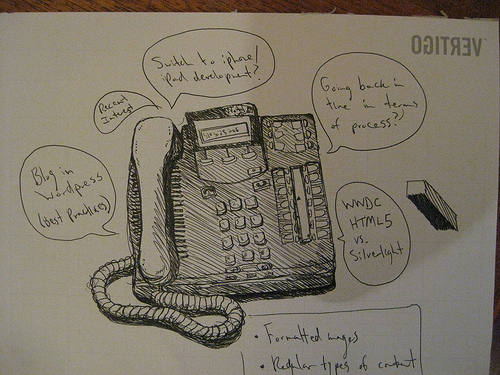 VERTIGO
Switch to iphone/
ipad development?
Recent
Interest
Going back in
time in terms
of process?
Blog in
wordpress
(best practices)
WWDC
HTML5
vs.
Silverlight
• Formatted images
• Regular types of content